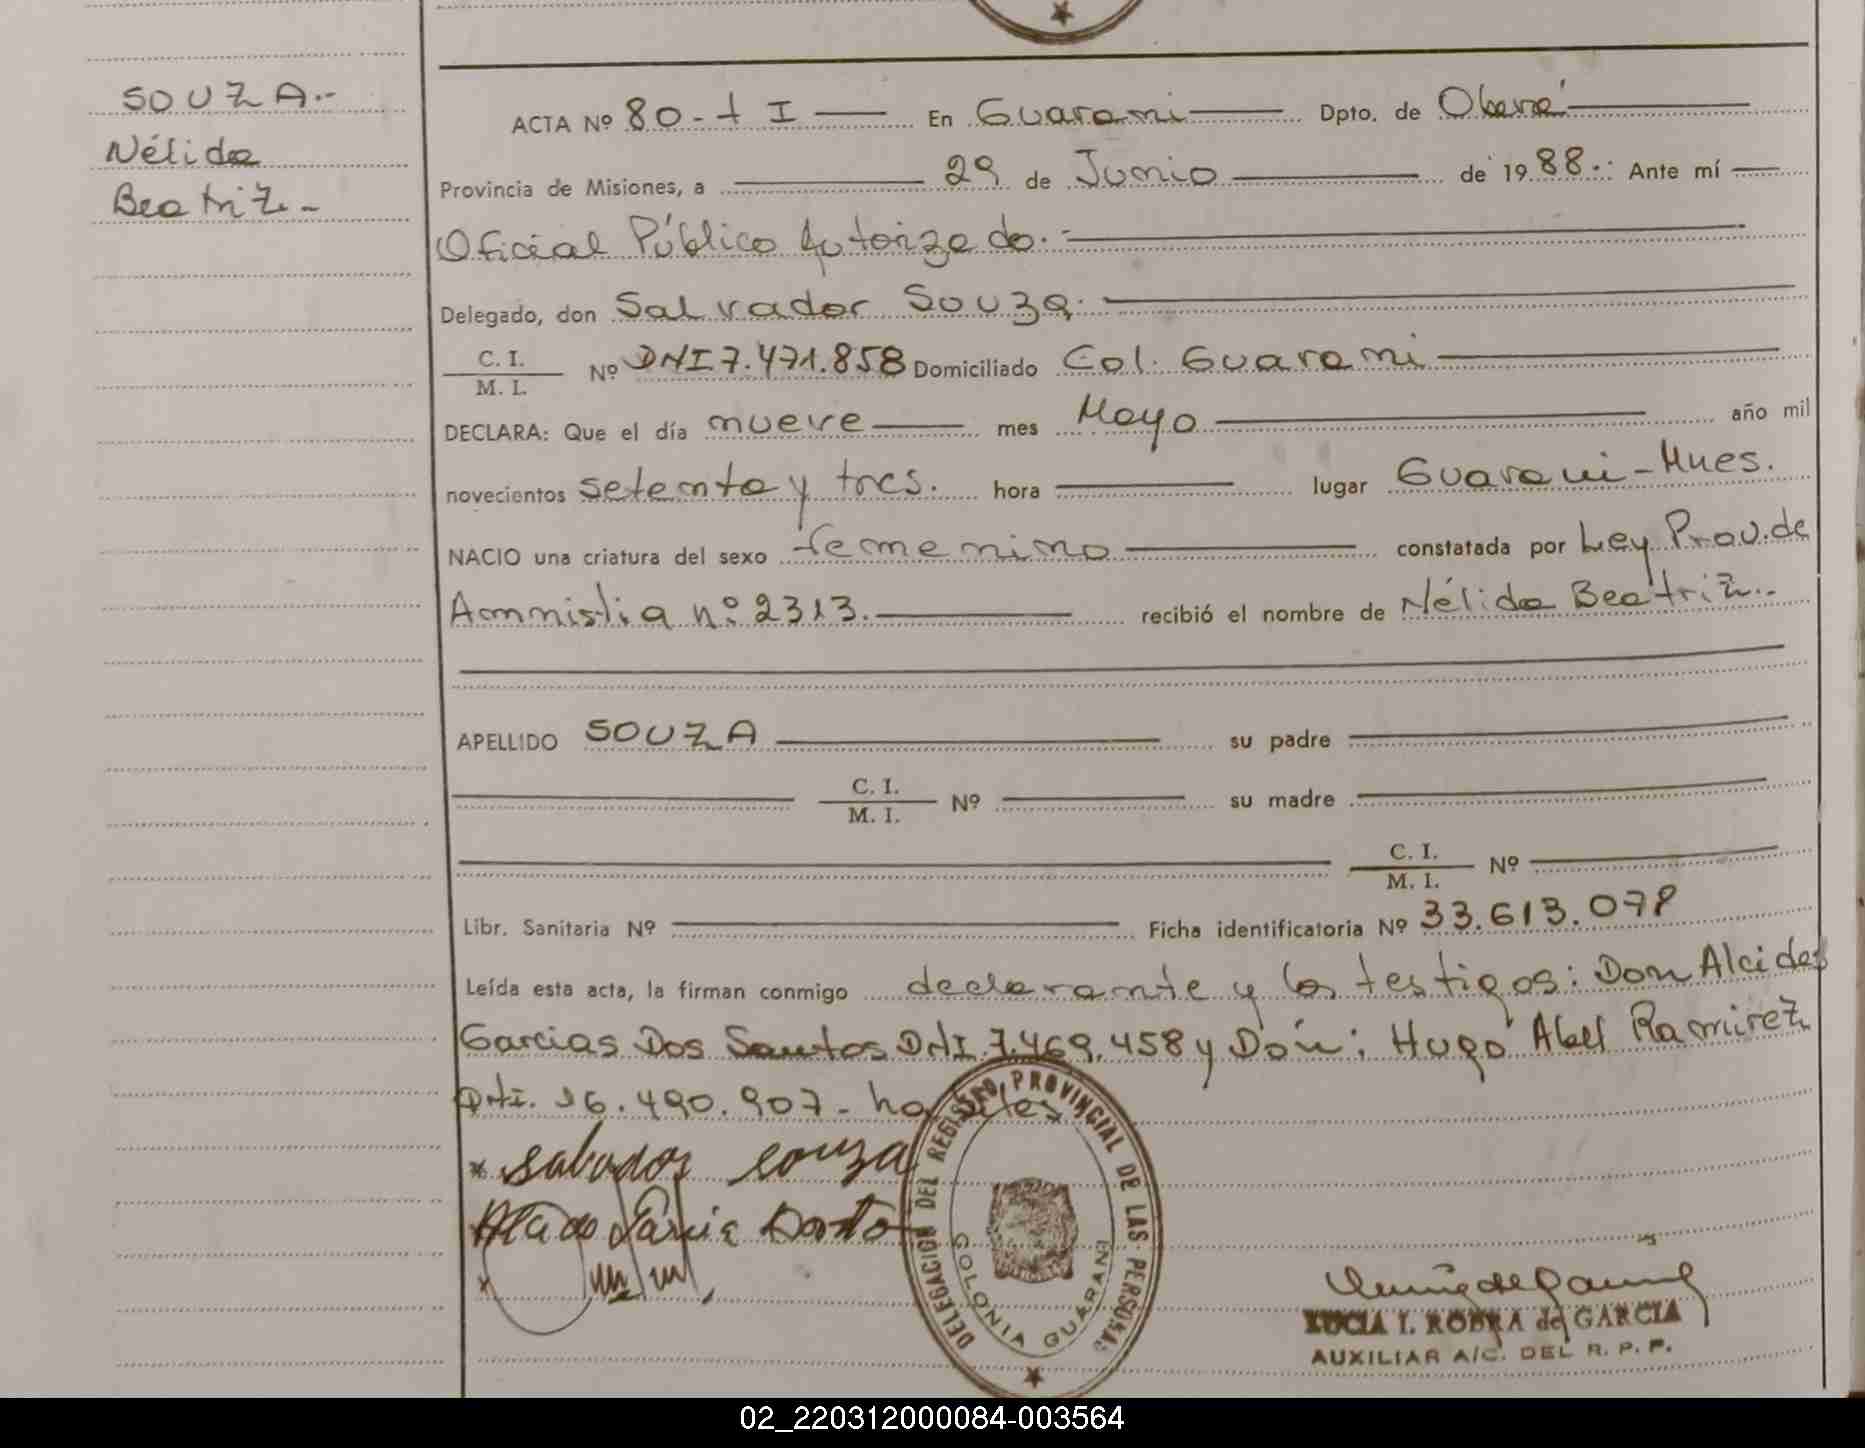 SOUZA.-
Nélida
Beatriz.-
ACTA Nº 80-t I — En Guarani — Dpto. de Oberá —
Provincia de Misiones, a — 29 de Junio — de 1988.-: Ante mí —
Oficial Público Autorizado.- —
Delegado, don Salvador Souza. —
C. I.
M. I. Nº DNI 7.471.858 Domiciliado Col. Guarani —
DECLARA: Que el día nueve — mes Mayo — año mil
novecientos setenta y tres. hora — lugar Guarani - Mnes.
NACIO una criatura del sexo femenino — constatada por Ley Prov. de
Amnistia nº 2313. — recibió el nombre de Nélida Beatriz.-
APELLIDO SOUZA — su padre —
— C. I.
M. I. Nº — su madre —
— C. I.
M. I. Nº —
Libr. Sanitaria Nº — Ficha identificatoria Nº 33.613.078
Leída esta acta, la firman conmigo declarante y los testigos: Don Alcides
Garcias Dos Santos DNI. 7.469.458 y Don: Hugo Abel Ramirez
DNI. 16.490.907- habiles
* salvador souza
DELEGACION DEL REGISTRO PROVINCIAL DE LAS PERSONAS
COLONIA GUARANI
LUCIA I. RODRA de GARCIA
AUXILIAR A/C. DEL R. P. P.
02_220312000084-003564